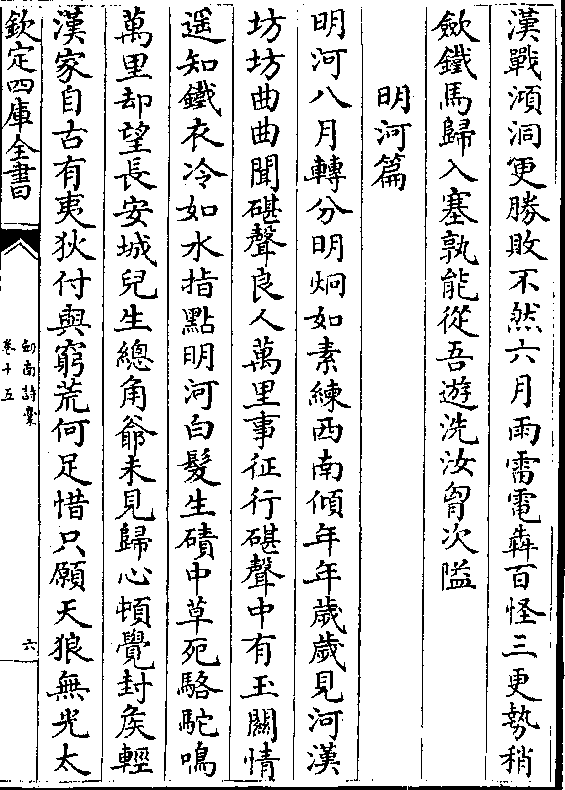 漢戰澒洞更勝敗不然六月雨雷電犇百怪三更勢稍
歛鐵馬歸入塞孰能從吾遊洗汝胷次隘
明河篇
明河八月轉分明炯如素練西南傾年年歲歲見河漢
坊坊曲曲聞碪聲良人萬里事征行碪聲中有玉關情
遥知鐵衣冷如水指點明河白髮生磧中草死駱駝鳴
萬里却望長安城兒生總角爺未見歸心頓覺封矦輕
漢家自古有夷狄付與窮荒何足惜只願天狼無光太
欽定四庫全書
劍南詩藁
卷十五
六